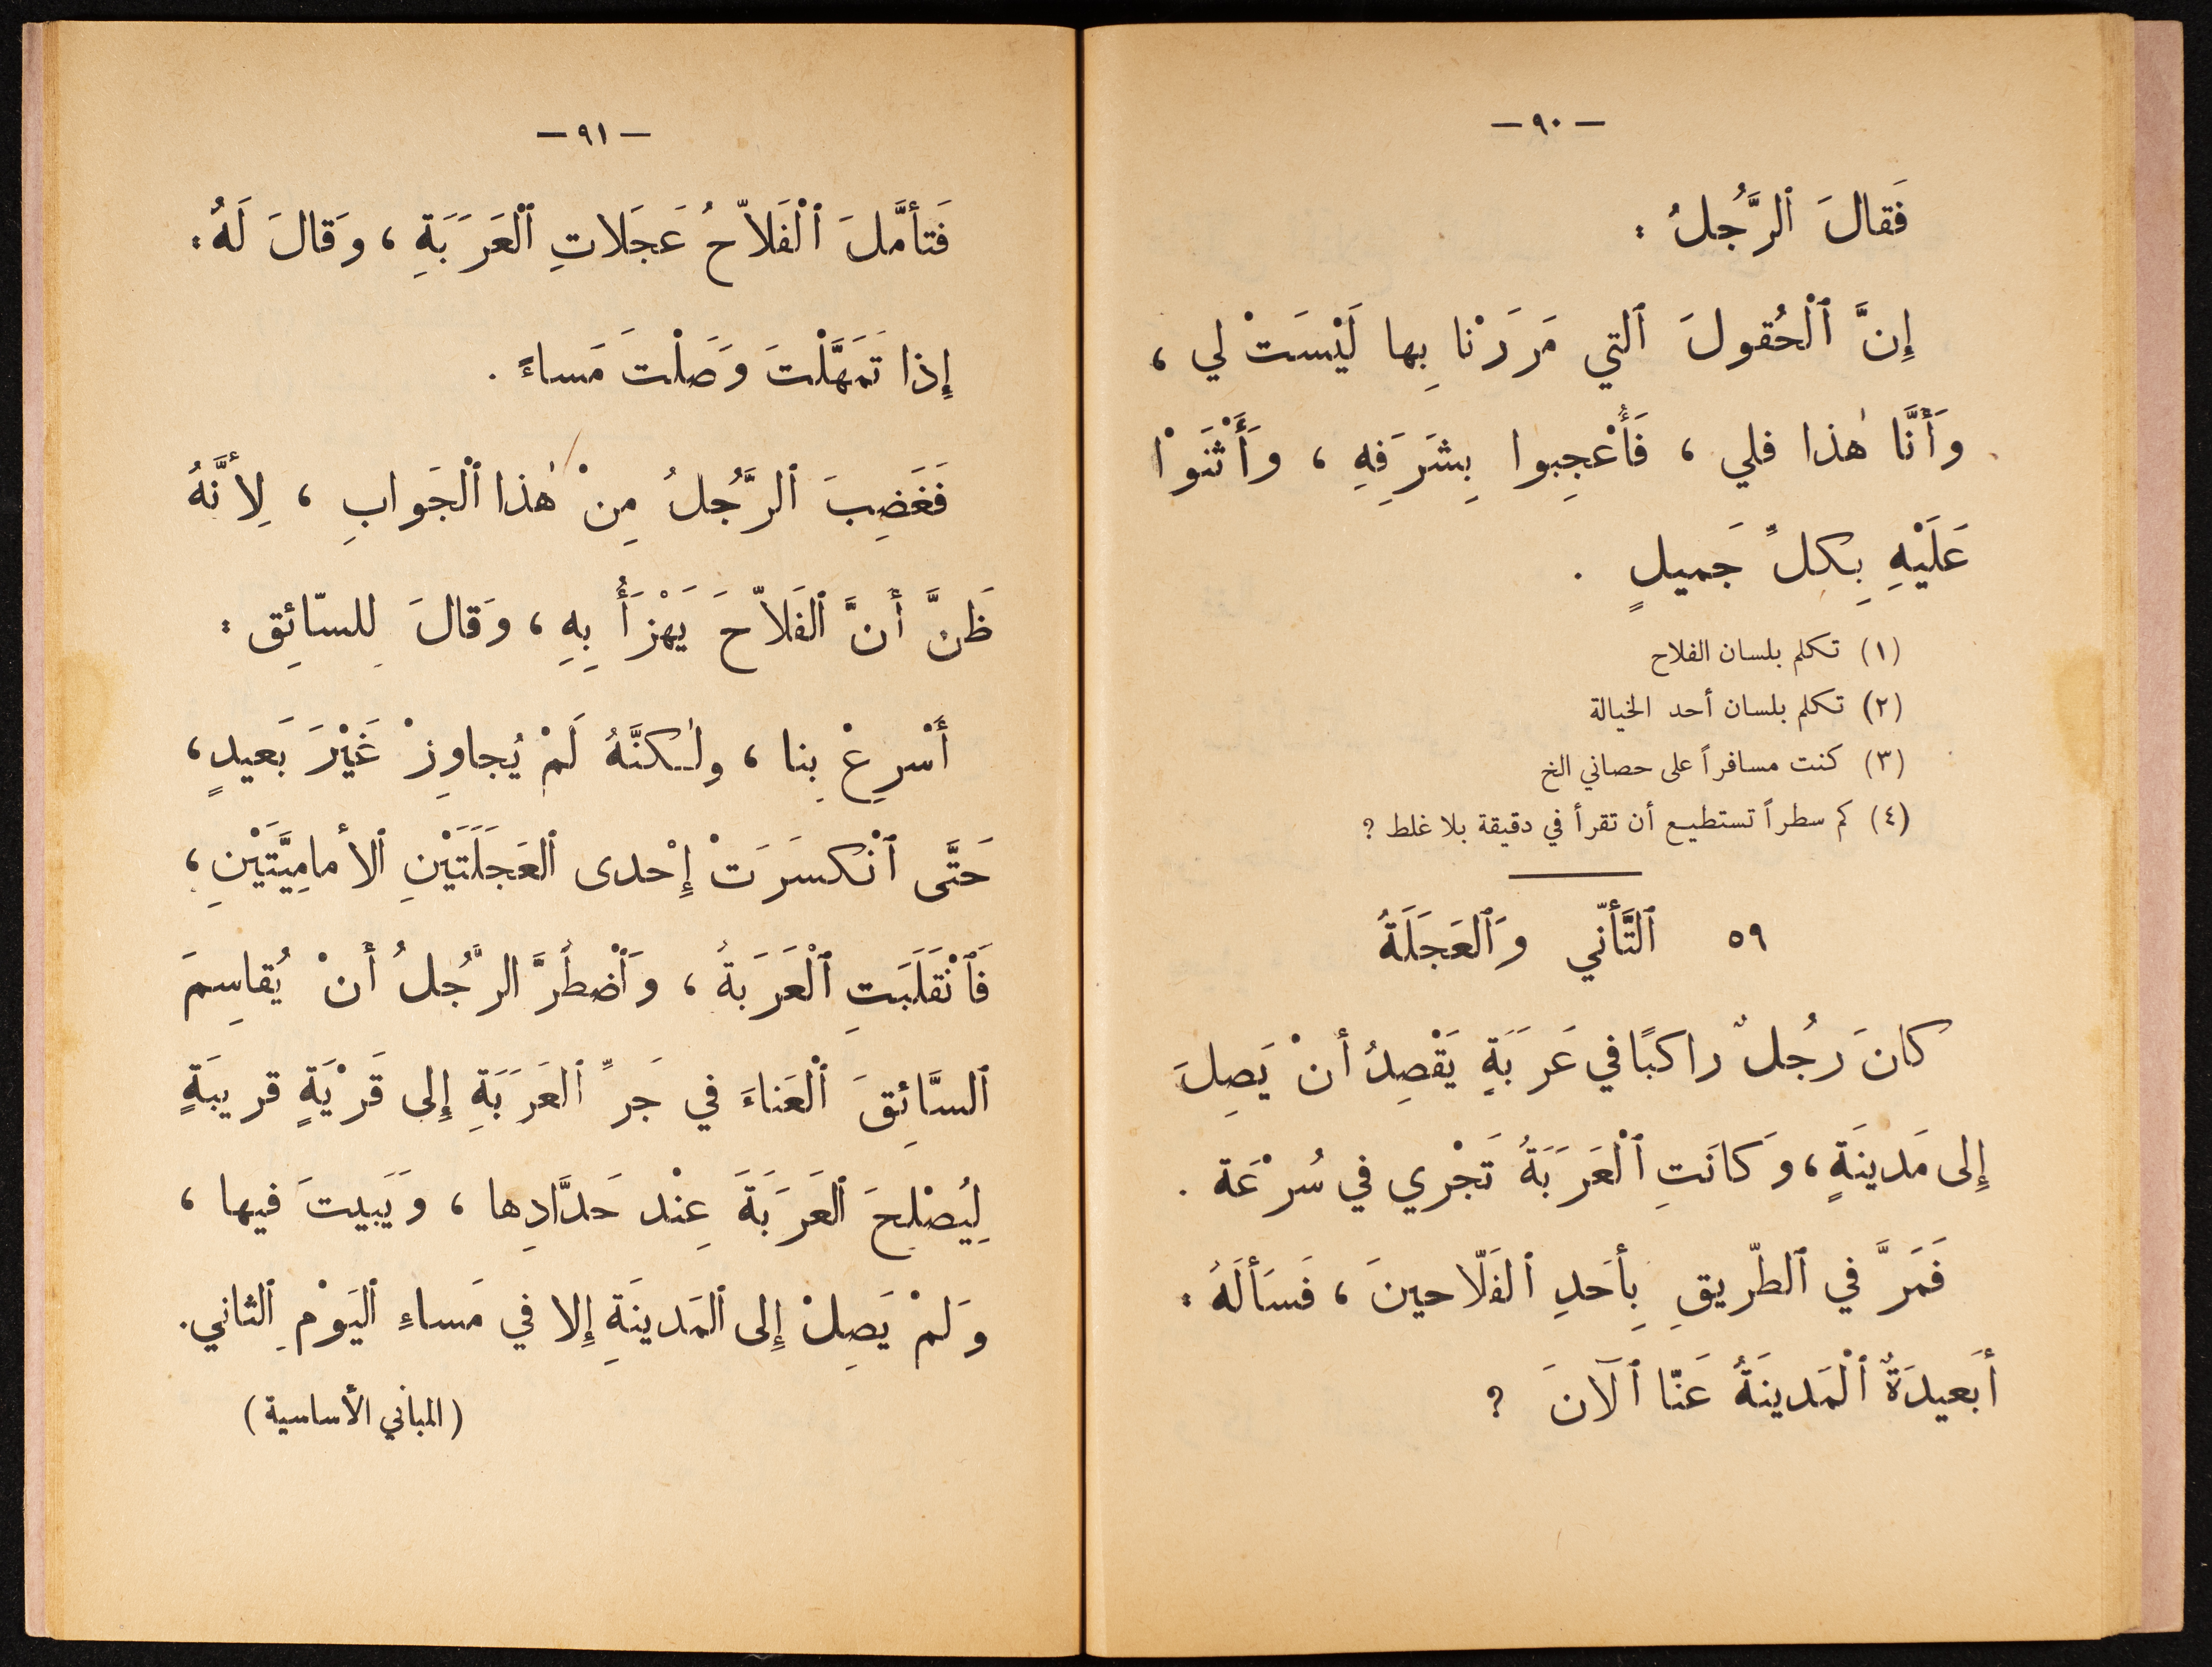 — ٩٠ —
فَقالَ ٱلرَّجُلُ :
إِنَّ ٱلْحُقولَ ٱلتي مَرَرْنا بِها لَيْسَتْ لي ،
وَأَنَّا هٰذا فلي ، فَأُعْجِبوا بِشَرَفِهِ ، وَأَثْنَوْا
عَلَيْهِ بِكلِّ جَميلٍ .
(١) تكلم بلسان الفلاح
(٢) تكلم بلسان أحد الخيالة
(٣) كنت مسافراً على حصاني الخ
(٤) كم سطراً تستطيع أن تقرأ في دقيقة بلا غلط ؟
٥٩ ٱلتَّأنّي وَٱلعَجَلَةُ
كانَ رَجُلٌ راكبًا في عَرَبَةٍ يَقْصِدُ أنْ يَصِلَ
إِلى مَدينَةٍ ، وَكانَتِ ٱلْعَرَبَةُ تَجْري في سُرْعَة .
فَمَرَّ في ٱلطّريقِ بِأحَدِ ٱلفَلّاحينَ ، فَسَألَهُ :
أبَعيدَةٌ ٱلْمَدينَةُ عَنّا ٱلآنَ ؟
— ٩١ —
فَتأمَّلَ ٱلْفَلاّحُ عَجَلاتِ ٱلْعَرَبَةِ ، وَقالَ لَهُ :
إِذا تَمَهَّلْتَ وَصَلْتَ مَساءً .
فَغَضِبَ ٱلرَّجُلُ مِنْ هٰذا ٱلْجَوابِ ، لِأنَّهُ
ظَنَّ أَنَّ ٱلفَلاّحَ يَهْزَأُ بِهِ ، وَقالَ لِلسّائِق :
أَسْرِعْ بِنا ، ولٰكنَّهُ لَمْ يُجاوِزْ غَيْرَ بَعيدٍ ،
حَتَّى ٱنْكسَرَتْ إِحْدى ٱلعَجَلَتَيْنِ ٱلأمامِيَّتَيْنِ ،
فَٱنْقَلَبَتِ ٱلْعَرَبَةُ ، وَٱضْطُرَّ الرَّجُلُ أَنْ يُقاسِمَ
ٱلسَّائِقَ ٱلْعَناءَ في جَرِّ ٱلعَرَبَةِ إِلى قَرْيَةٍ قريبَةٍ
لِيُصْلِحَ ٱلعَرَبَةَ عِنْد حَدَّادِها ، وَيَبيتَ فيها ،
وَلَمْ يَصِلْ إِلى ٱلمَدينَةِ إِلا في مَساءِ ٱليَوْمِ ٱلثاني .
(المباني الأساسية)